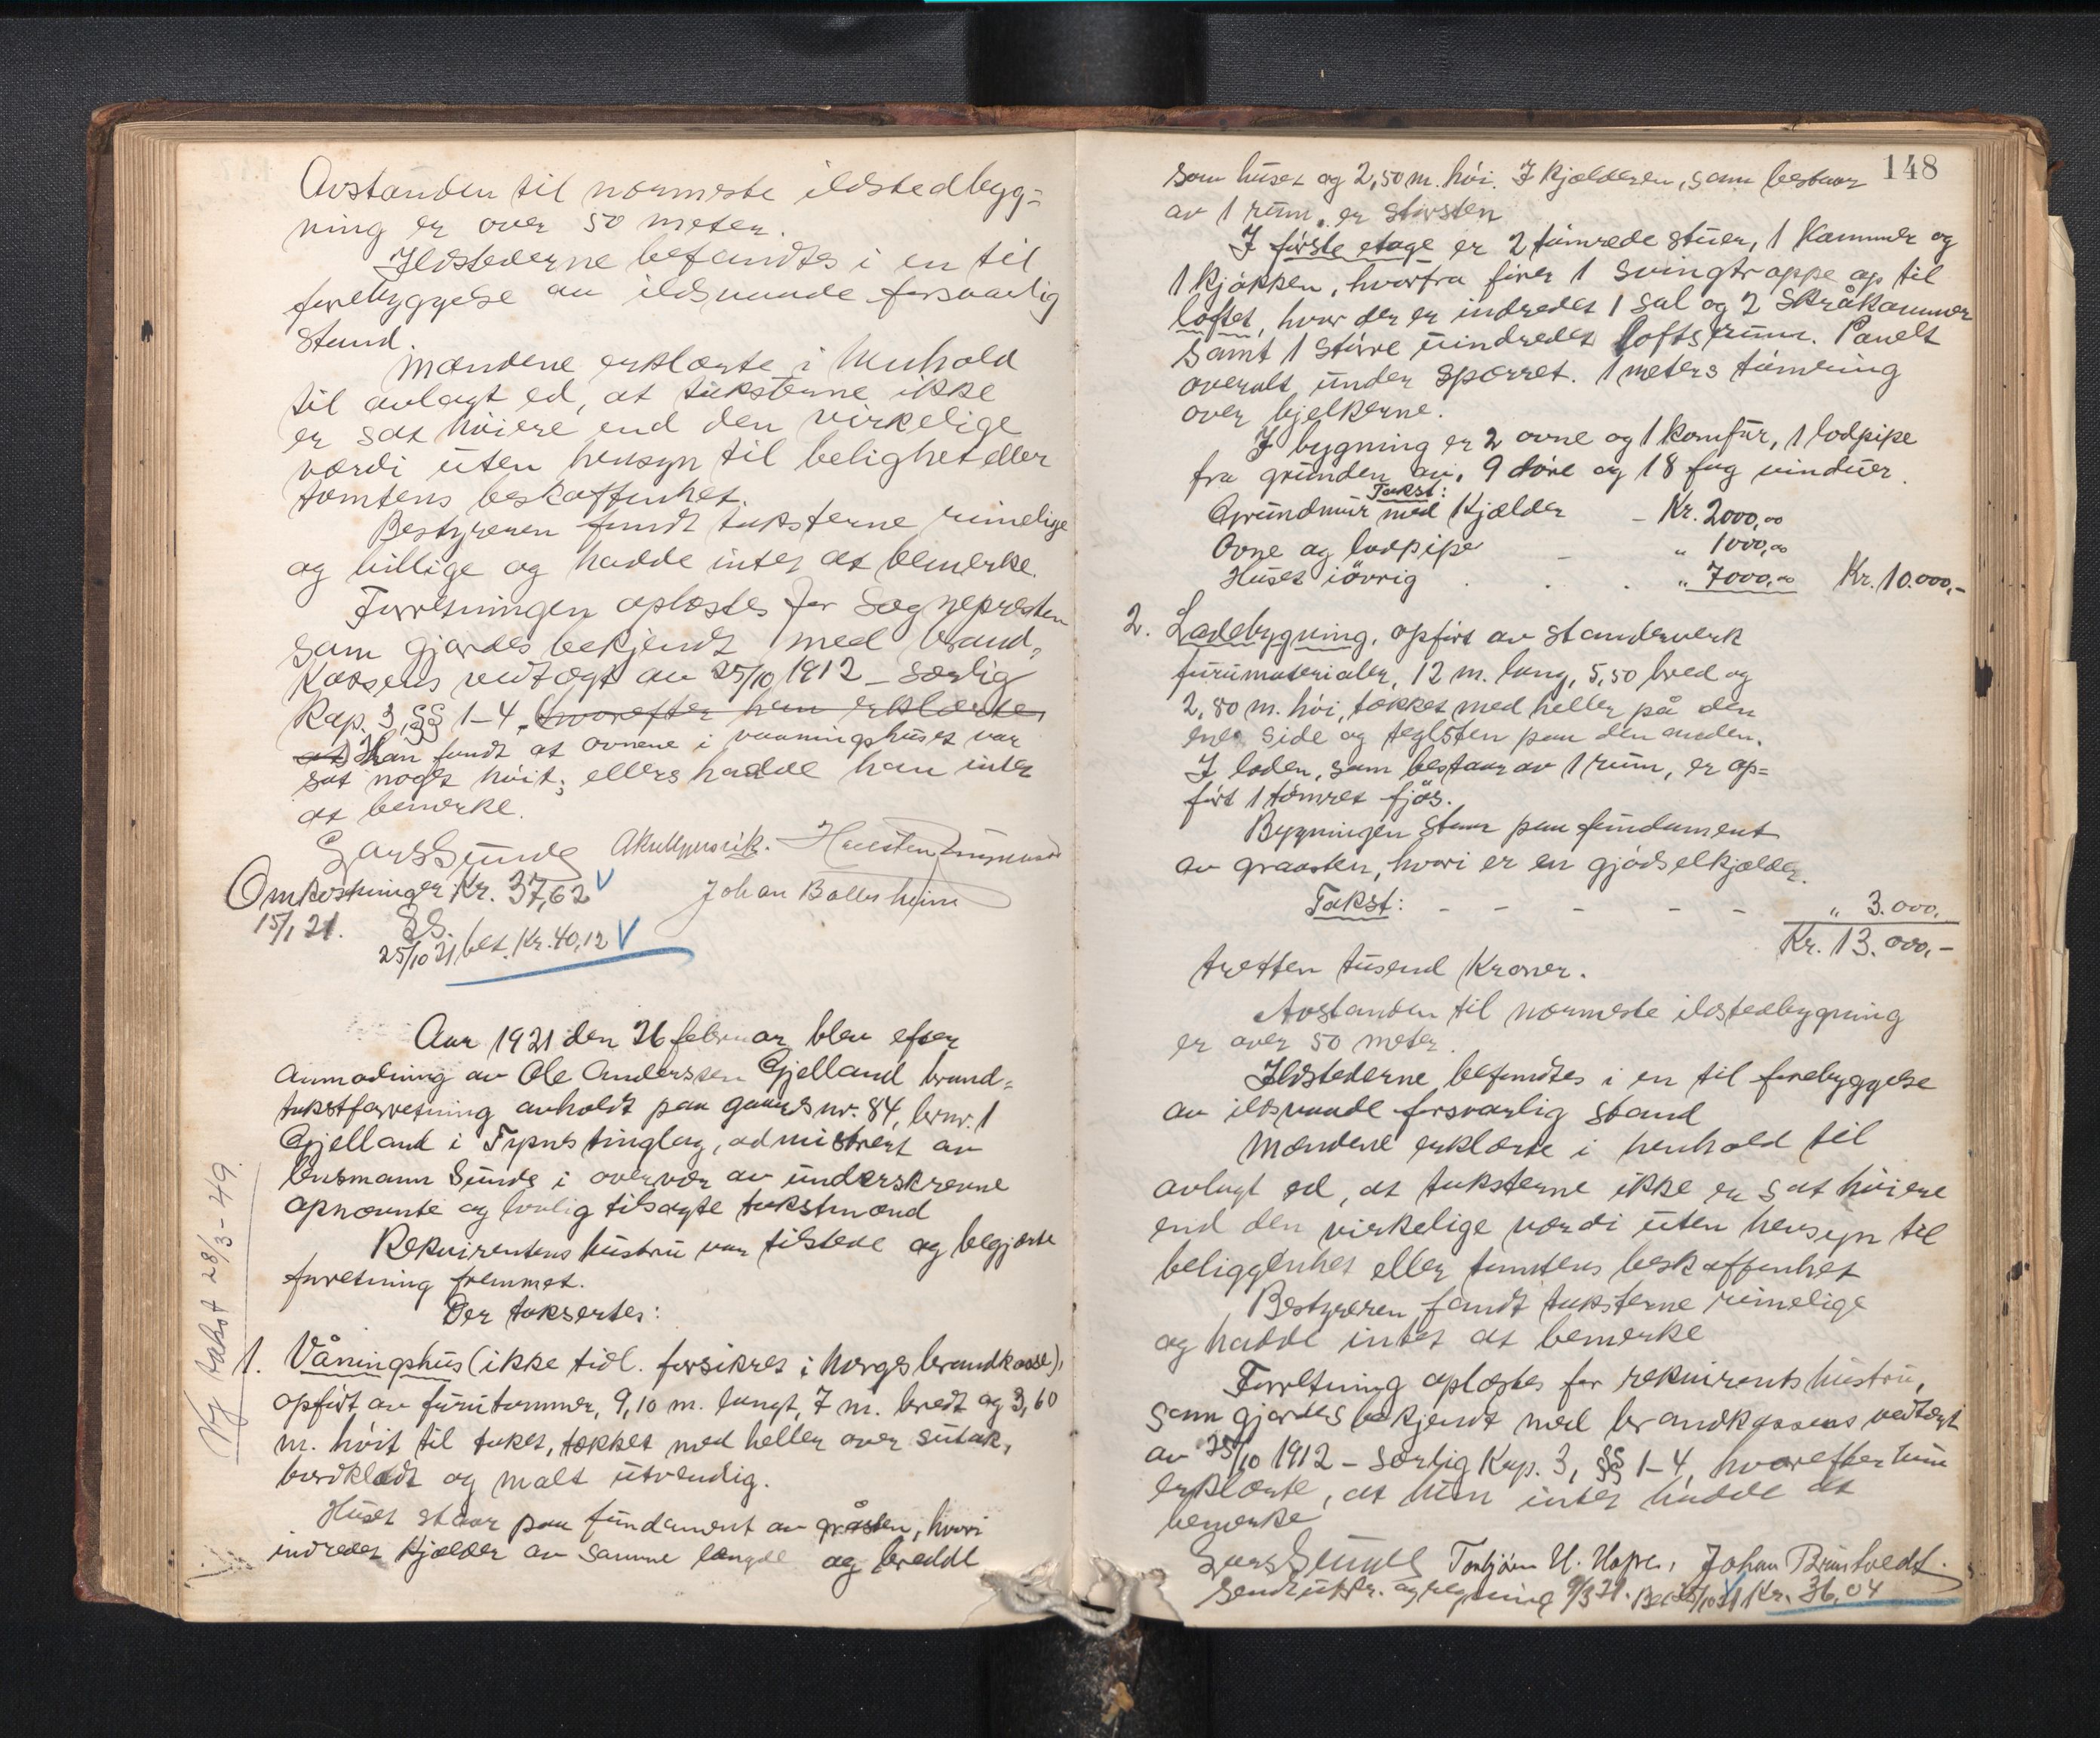 Avstanden til nærmeste ildstedbyg=
ning er over 50 meter.
Ildstederne befandtes i en til
forebyggelse av ildsvaade forsvarlig
stand.
Mændene erklærte i henhold
til avlagt ed, at taksterne ikke
er sat høiere end den virkelige
værdi uten hensyn til belighet eller
tomtens beskaffenhet.
Bestyreren fandt taksterne rimelige
og billige og hadde intet at bemerke.
Forretningen oplæstes for Sognepresten
som gjordes bekjendt med brand=
kassens vedtægt av 25/10 1912 – særlig
Kap. 3, §§ 1–4, hvorefter han erklærte
at Han fandt at ovnene i vaaningshuset var
sat noget høit; ellers hadde han intet
at bemerke.
Lars Sunde
Johan Ballesheim
Omkostninger Kr. 37,62
15/1 21. LS.
25/10 21 bet. Kr. 40,12
Aar 1921 den 26 februar blev efter
anmodning av Ole Anderssen Gjelland brand=
takstforretning avholdt paa gaards nr. 84, brnr. 1
Gjelland i Fyens tinglag, admistrert av
lensmann Sunde i overvær av underskrevne
opnævnte og lovlig tilsagte takstmænd
Rekvirentens hustru var tilstede og begjærte
forretning fremmet.
Der taksertes:
Ny takst 28/3-49.
1. Våningshus (ikke tidl. forsikret i Norges brandkasse),
opført av furutømmer, 9,10 m. langt, 7 m. bredt og 3,60
m. høit til taket, tækket med heller over sutak,
bordklædt og malt utvendig.
Huset staar paa fundament av gråsten, hvori
indredet Kjælder av samme længde og bredde
148
som huset og 2,50 m. høi. I kjælderen, som bestaar
av 1 rum, er størsten
I første etage er 2 tømrede stuer, 1 Kammer og
1 kjøkken, hvorfra fører 1 svingtrappe op til
loftet, hvor der er indredet 1 sal og 2 Skråkammer
samt 1 større uindredet loftsrum. Panelt
overalt under sperret. 1 meters tømring
over bjelkerne.
I bygning er 2 ovne og 1 komfur, 1 lodpipe
fra grunden av, 9 døre og 18 fag vinduer.
Takst:
Grundmur med Kjælder – Kr. 2000,00
Ovne og lodpipe – „ 1000,00
Huset iøvrig . . . „ 7000,00 Kr. 10.000,-
2. Ladebygning, opført av standerverk
furumaterialer, 12 m. lang, 5,50 bred og
2,80 m. høi, tækket med heller på den
ene side og teglsten paa den anden.
I loden, som bestaar av 1 rum, er op=
ført 1 tømret fjøs.
Bygningen staar paa fundament
av graasten, hvori er en gjødselkjælder.
Takst: – – – – – „ 3.000,
Kr. 13.000,-
tretten tusend Kroner.
Avstanden til nærmeste ildstedbygning
er over 50 meter.
Ildstederne befandtes i en til forebyggelse
av ildsvaade forsvarlig stand
Mændene erklærte i henhold til
avlagt ed, at taksterne ikke er sat høiere
end den virkelige værdi uten hensyn til
beliggenhet eller tomtens beskaffenhet
Bestyreren fandt taksterne rimelige
og hadde intet at bemerke
Forretning oplæstes for rekvirents hustru,
som gjordes bekjendt med brandkassens vedtægt
av 25/10 1912 – særlig Kap. 3, §§ 1–4, hvorefter hun
erklærte, at hun intet hadde at
bemerke
Lars Sunde Torbjørn H. Hopre, Johan Bruntvedt.
Sendt utskr. og regning 9/3 21. Bet. 25/10 21 Kr. 36,04